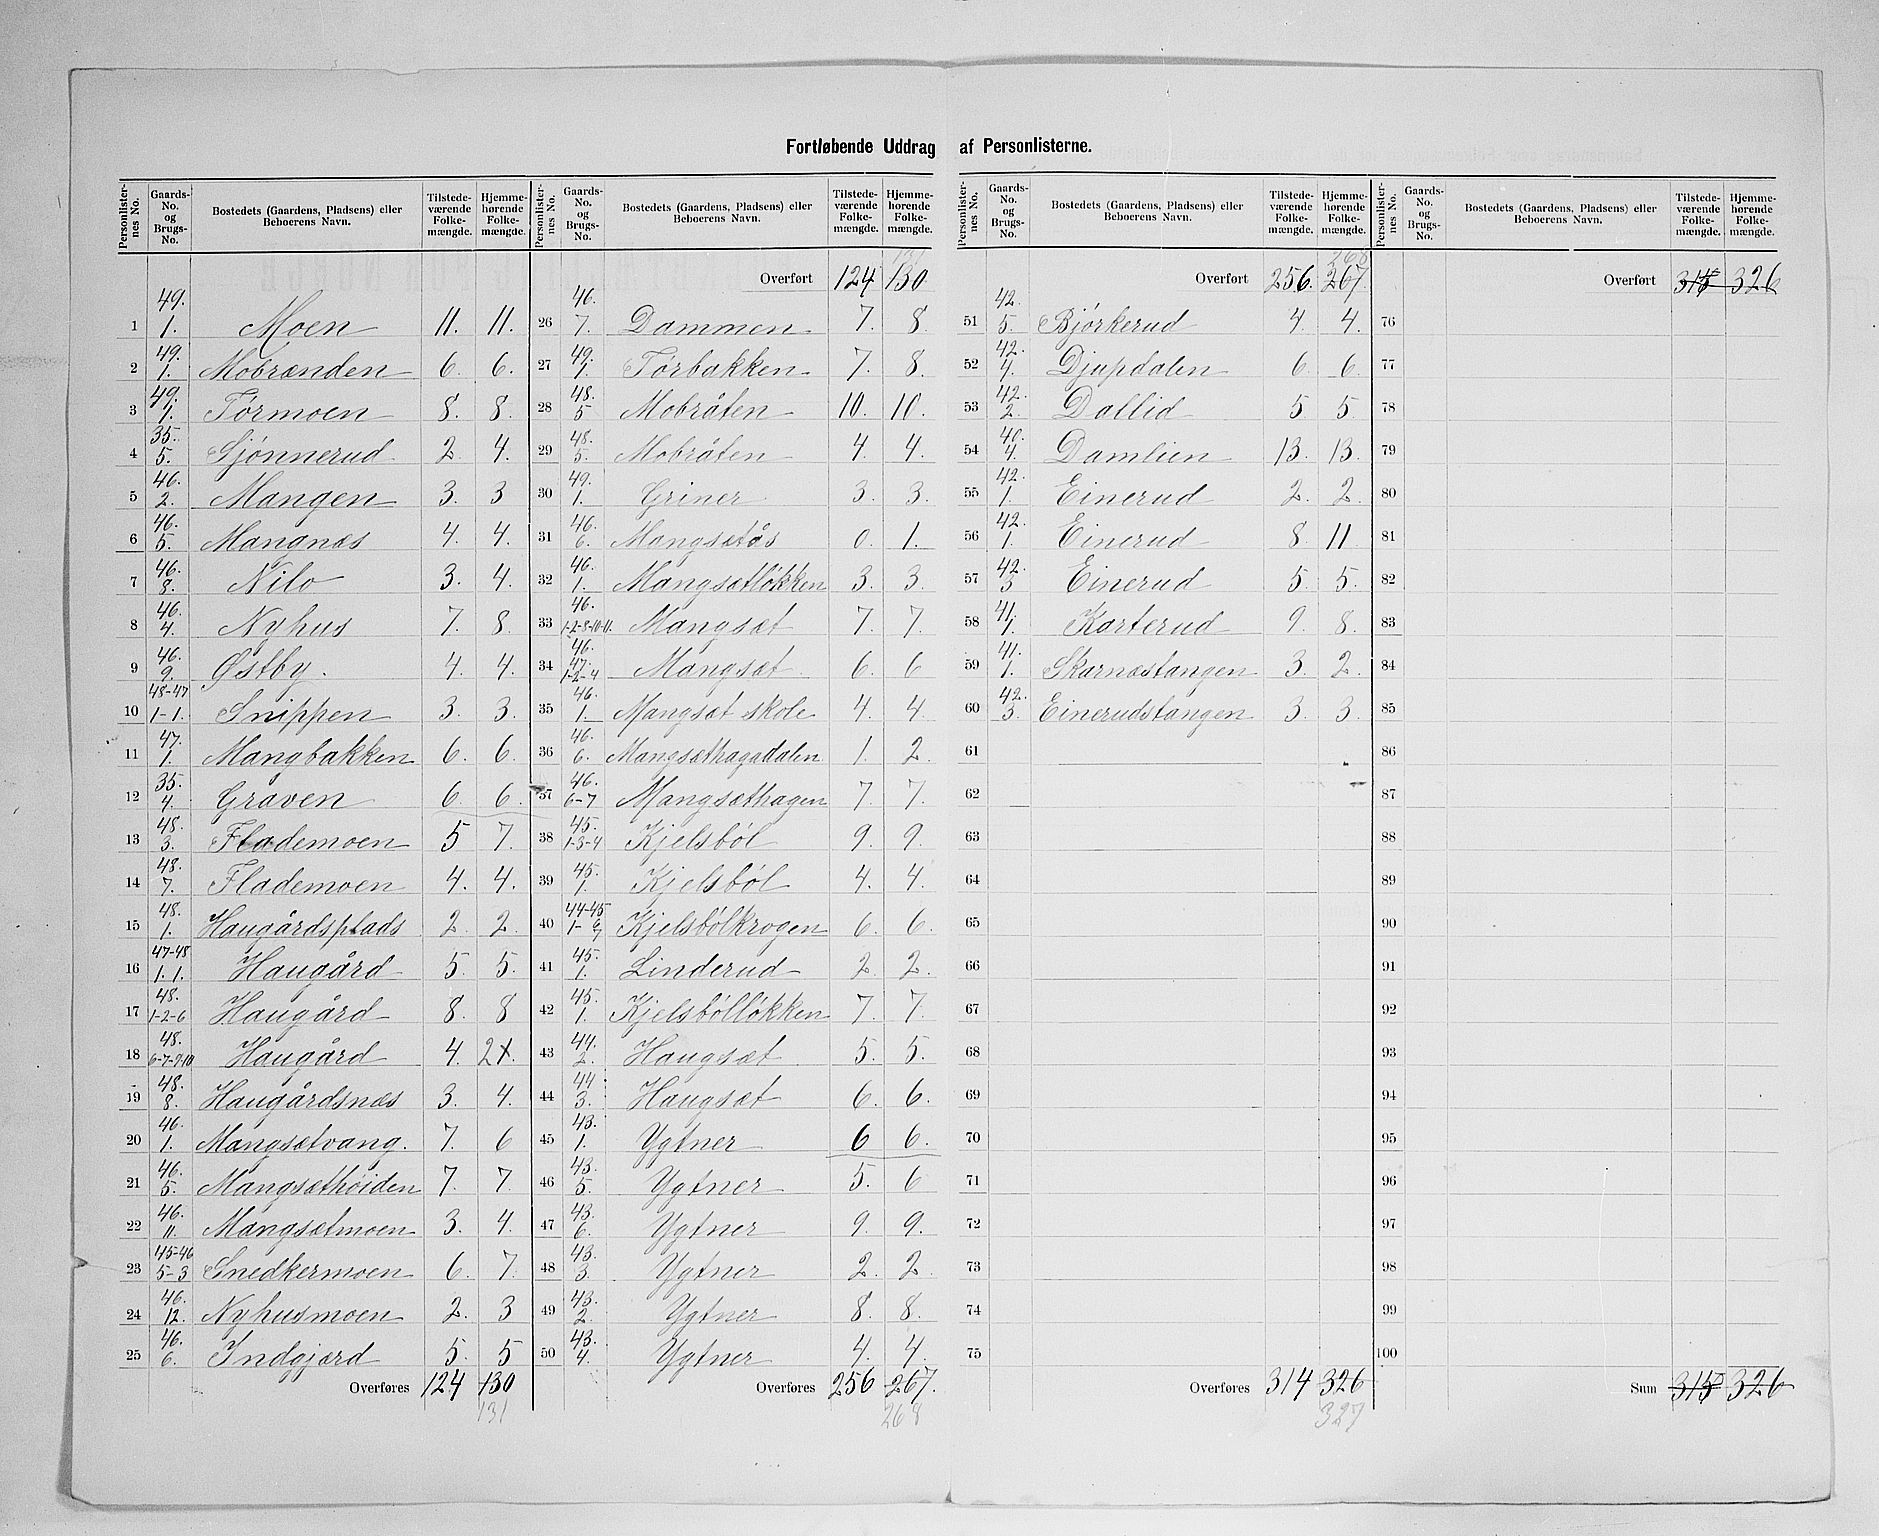 Fortløbende Uddrag af Personlisterne.
Personlisternes No. | Gaards-No. og Brugs-No. | Bostedets (Gaardens, Pladsens) eller Beboerens Navn. | Tilstedeværende Folkemængde. | Hjemmehørende Folkemængde.
1 | 49. 1. | Moen | 11. | 11.
2 | 49. 1. | Mobrænden | 6. | 6.
3 | 49. 1. | Tørmoen | 8. | 8.
4 | 35. 5. | Sjønnerud | 2 | 4.
5 | 46. 2. | Mangen | 3. | 3
6 | 46. 5. | Mangnæs | 4. | 4.
7 | 46. 8. | Nilo | 3. | 4.
8 | 46. 4. | Nyhus | 7. | 8.
9 | 46. 9. | Østby. | 4. | 4.
10 | 48-47 1-1. | Snippen | 3. | 3.
11 | 47. 1. | Mangbakken | 6. | 6.
12 | 35. 4. | Graven | 6. | 6.
13 | 48. 3. | Flademoen | 5 | 7.
14 | 48. 7. | Flademoen | 4. | 4.
15 | 48. 1. | Haugårdsplads | 2. | 2.
16 | 47-48 1. 1. | Haugård | 5. | 5.
17 | 48. 1-2-6 | Haugård | 8. | 8
18 | 48. 6-7-9-10 | Haugård | 4. | 2
19 | 48. 8. | Haugårdsnæs | 3. | 4.
20 | 46. 1. | Mangsætvang. | 7. | 6
21 | 46. 5. | Mangsæthøiden | 7. | 7.
22 | 46. 11. | Mangsætmoen | 3. | 4.
23 | 45-46 5-3 | Snedkermoen | 6. | 7.
24 | 46. 12. | Nyhusmoen | 2. | 3
25 | 46. 6. | Indgjærd | 5. | 5
Overføres 124 130
131
Personlisternes No. | Gaards-No. og Brugs-No. | Bostedets (Gaardens, Pladsens) eller Beboerens Navn. | Tilstedeværende Folkemængde. | Hjemmehørende Folkemængde.
131
Overført 124 130
26 | 46. 7. | Dammen | 7. | 8.
27 | 49. 1. | Tørbakken | 7. | 8.
28 | 48. 5 | Mobråten | 10. | 10.
29 | 48. 5. | Mobråten | 4. | 4.
30 | 49. 1. | Griner | 3. | 3.
31 | 46. 6. | Mangsætås | 0. | 1.
32 | 46. 1. | Mangsætløkken | 3. | 3.
33 | 46. 1-2-8-10-11. | Mangsæt | 7. | 7.
34 | 46. 47. 1-2-4 | Mangsæt | 6. | 6
35 | 46. 1. | Mangsæt skole | 4. | 4
36 | 46. 6. | Mangsæthagadalen | 1. | 2.
37 | 46. 6-7 | Mangsæthagen | 7. | 7.
38 | 45. 1-3-4 | Kjelsbøl | 9. | 9.
39 | 45. 1. | Kjelsbøl | 4. | 4.
40 | 44-45 1- 6 7 | Kjelsbølkrogen | 6. | 6.
41 | 45. 1. | Linderud | 2 | 2.
42 | 45. 1. | Kjelsbølløkken | 7. | 7.
43 | 44. 2. | Haugsæt | 5. | 5.
44 | 44 3. | Haugsæt | 6. | 6.
45 | 43. 1. | Ygtner | 6 | 6.
46 | 43. 5. | Ygtner | 5. | 6
47 | 43. 6. | Ygtner | 9. | 9.
48 | 43. 3. | Ygtner | 2. | 2.
49 | 43. 2. | Ygtner | 8. | 8.
50 | 43. 4. | Ygtner | 4. | 4.
Overføres 256 267.
268
Personlisternes No. | Gaards-No. og Brugs-No. | Bostedets (Gaardens, Pladsens) eller Beboerens Navn. | Tilstedeværende Folkemængde. | Hjemmehørende Folkemængde.
268
Overført 256. 267.
51 | 42. 5. | Bjørkerud | 4. | 4.
52 | 42. 4. | Djupdalen | 6. | 6.
53 | 42. 2. | Dallid | 5 | 5.
54 | 40. 4. | Damlien | 13. | 13.
55 | 42. 1. | Einerud | 2. | 2.
56 | 42. 1. | Einerud | 8. | 11.
57 | 42. 3 | Einerud | 5. | 5.
58 | 41. 1. | Karterud | 9. | 8.
59 | 41. 1. | Skarnæstangen | 3. | 2.
60 | 42. 3. | Einerudstangen | 3. | 3.
61
62
63
64
65
66
67
68
69
70
71
72
73
74
75
Overføres 314 326
327
Personlisternes No. | Gaards-No. og Brugs-No. | Bostedets (Gaardens, Pladsens) eller Beboerens Navn. | Tilstedeværende Folkemængde. | Hjemmehørende Folkemængde.
Overført 315 326
76
77
78
79
80
81
82
83
84
85
86
87
88
89
90
91
92
93
94
95
96
97
98
99
100
Sum 315 326